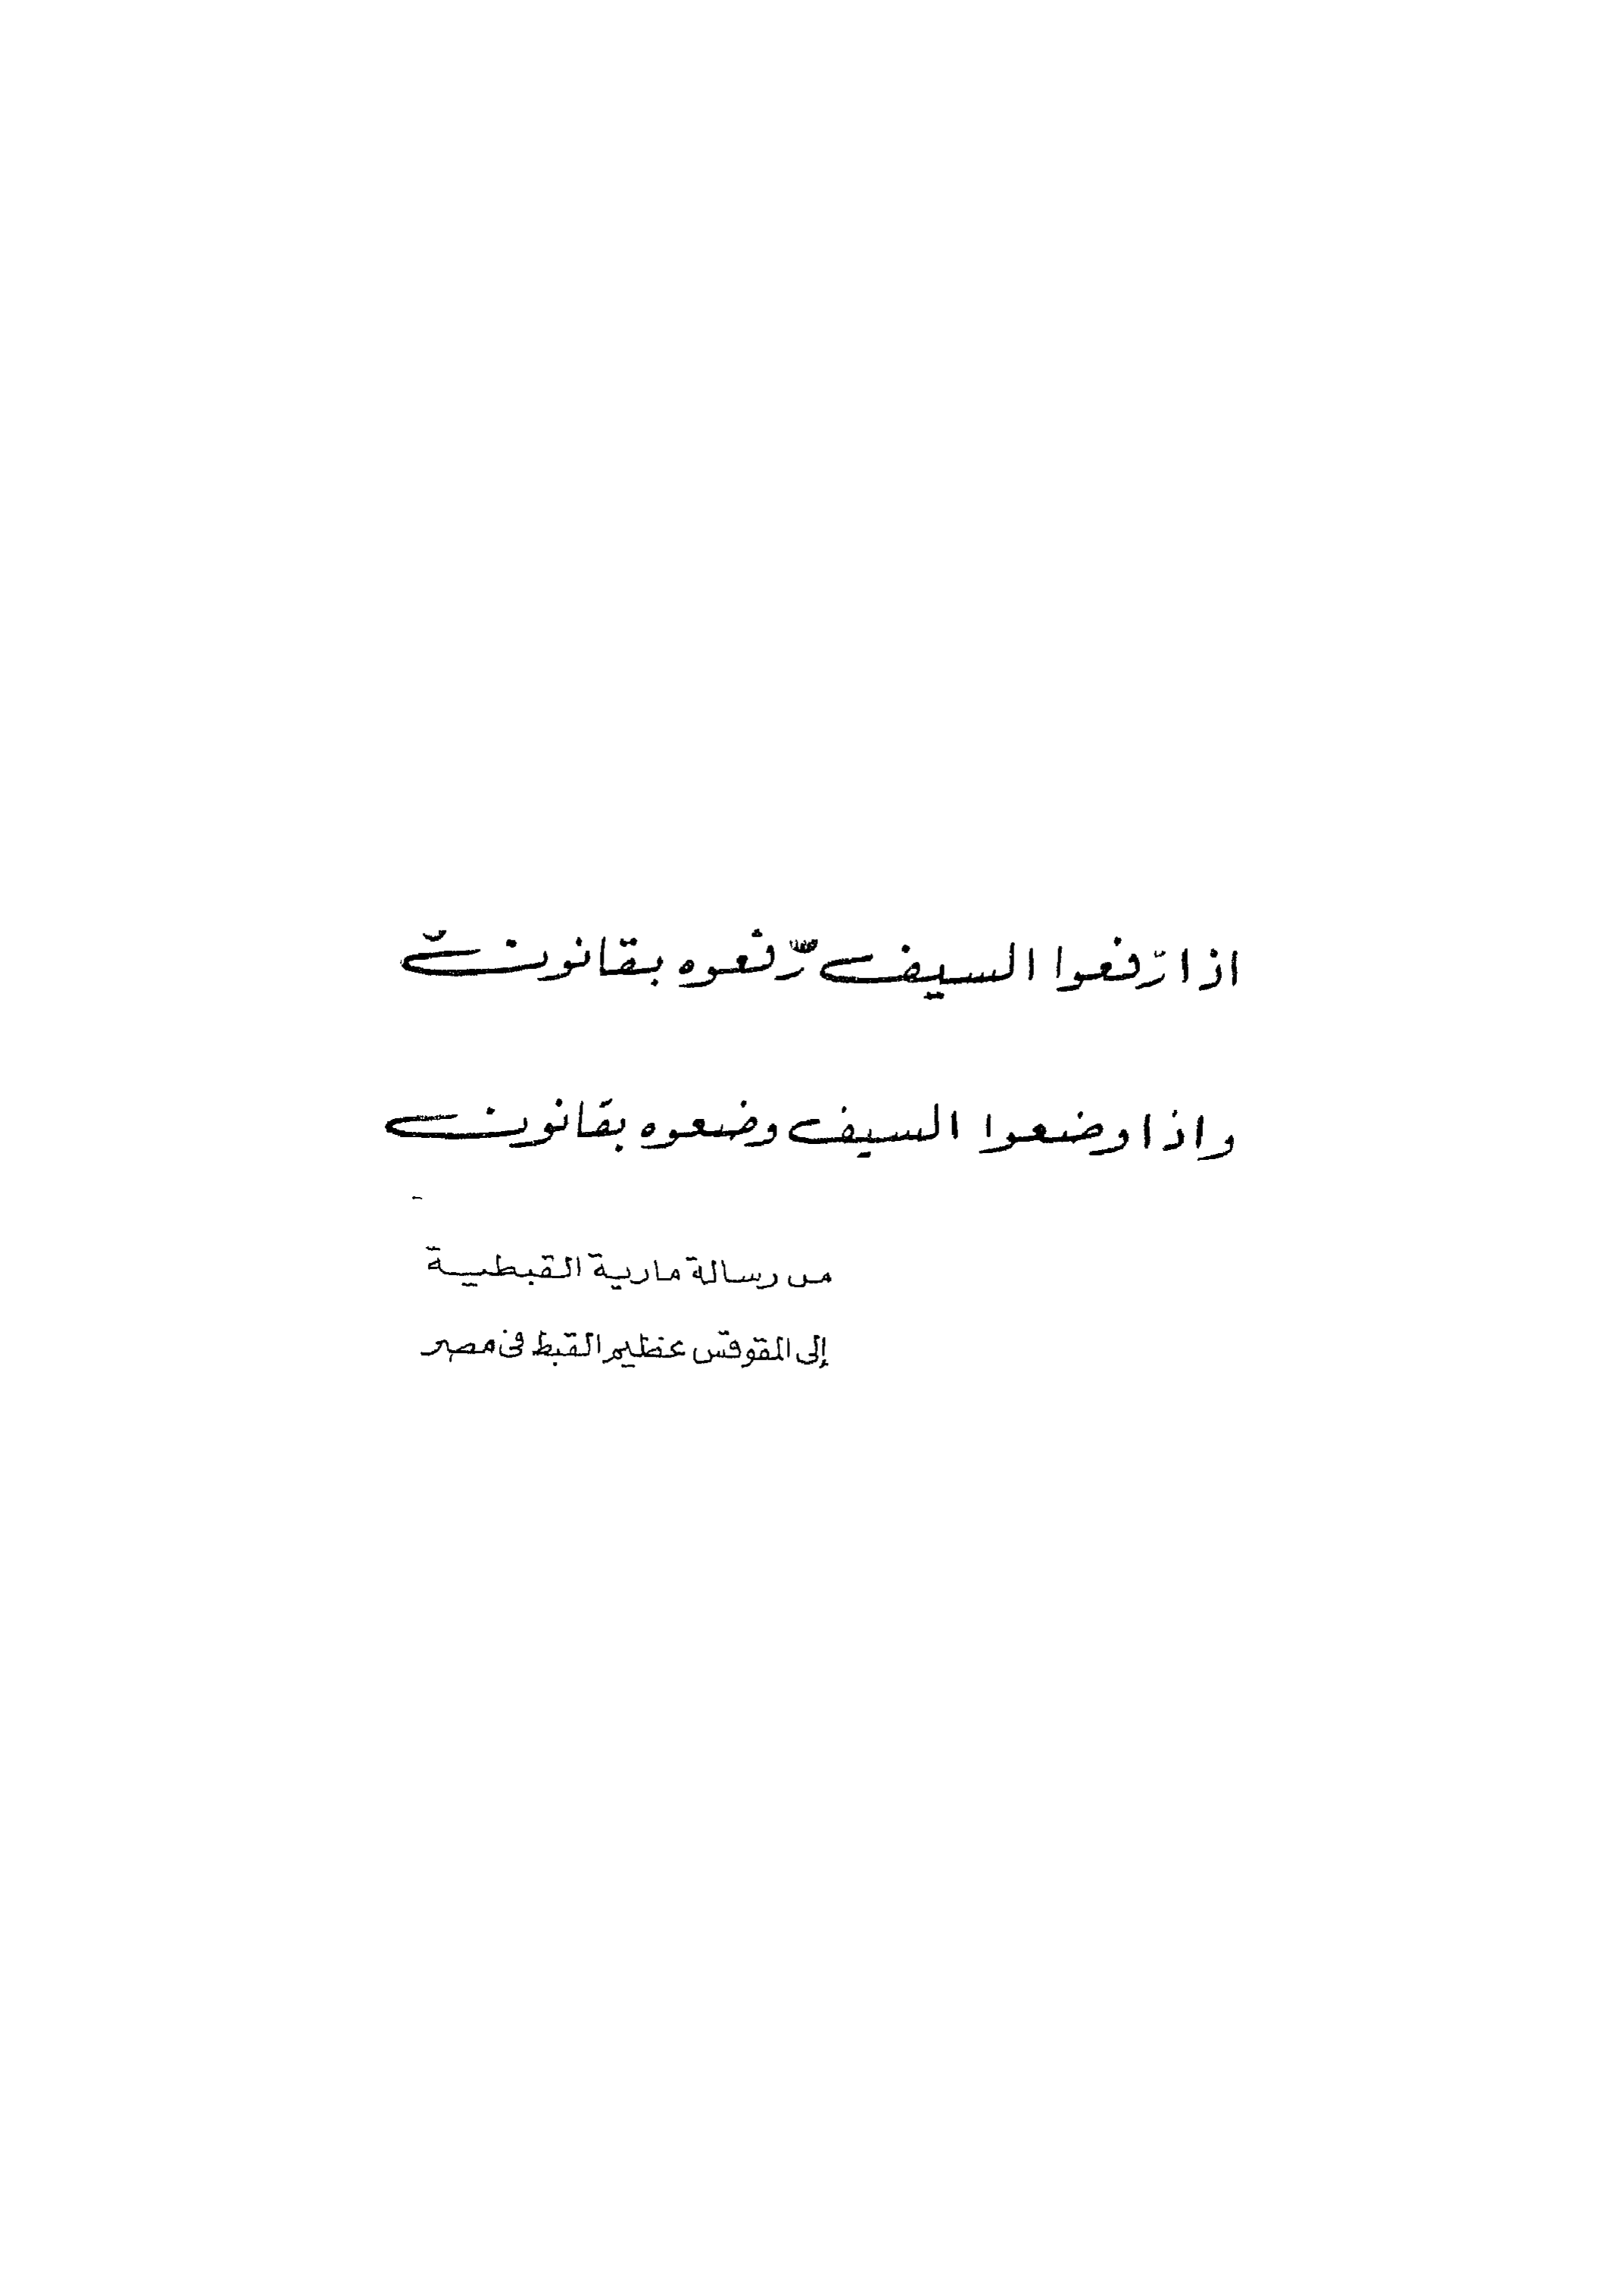 اذا رفعوا السيف رفعوه بقانون
واذا وضعوا السيف وضعوه بقانون
من رسالة مارية القبطية
إلى المقوقس عظيم القبط فى مصر